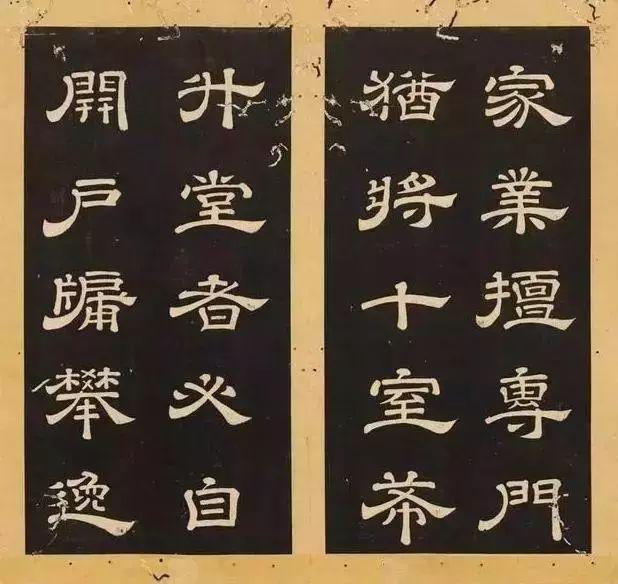 家業擅專門
猶將十室
升堂者必自
開戶牖攀逸